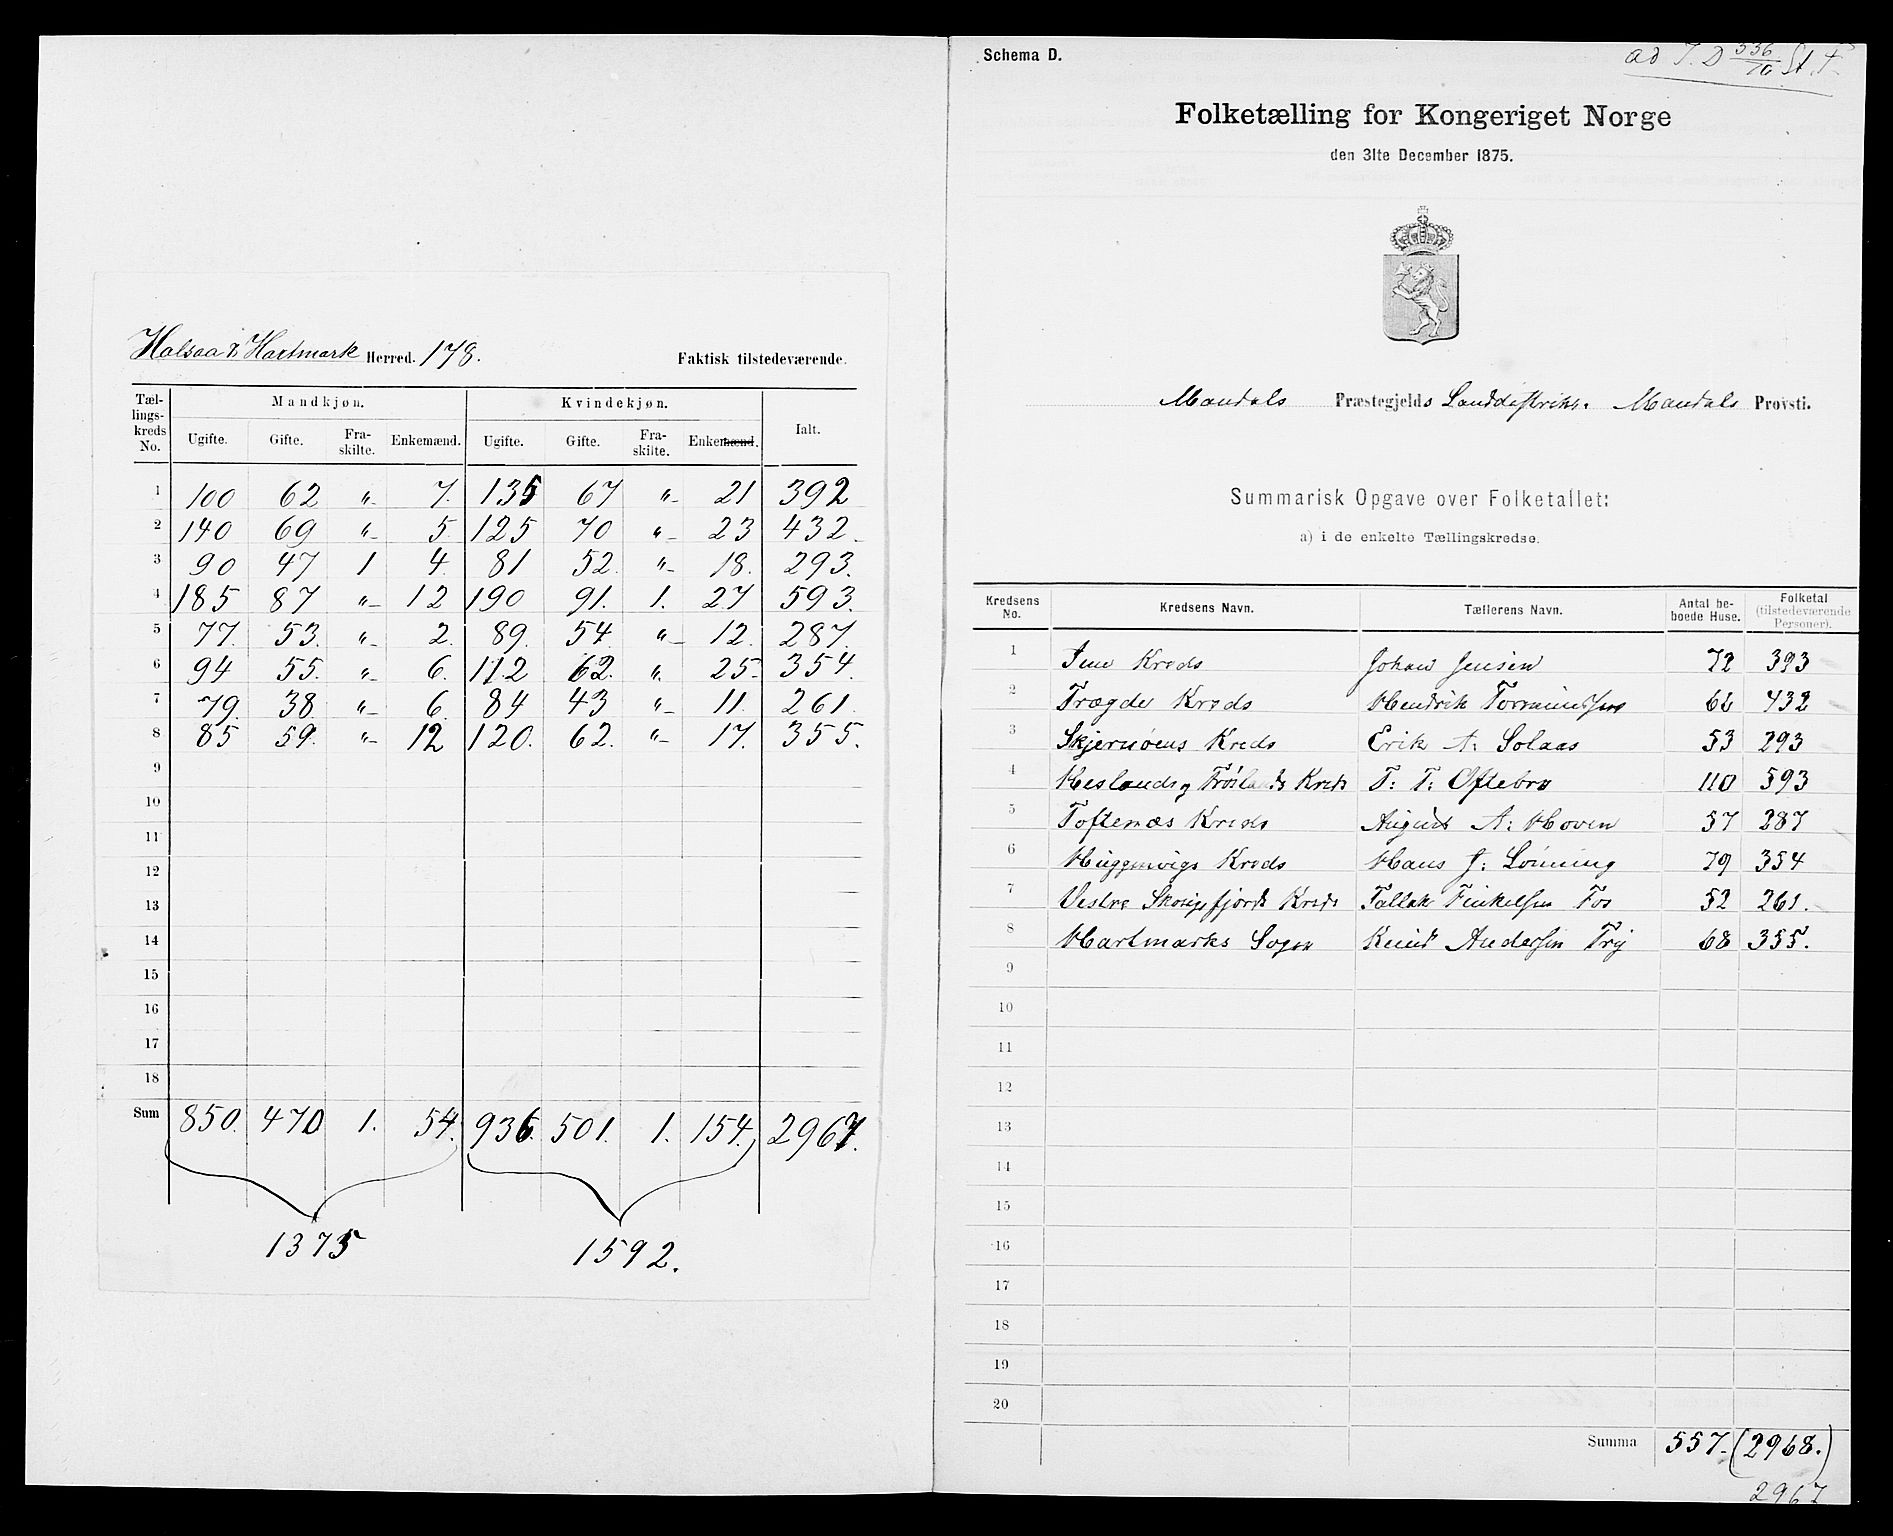 Halsaa & Hartmark Herred. 178. Faktisk tilstedeværende.
Tællingskreds No. Mandkjøn. Kvindekjøn. Ialt.
Ugifte. Gifte. Fraskilte. Enkemænd. Ugifte. Gifte. Fraskilte. Enkemænd.
1 100 62 "- 7. 135 67 "- 21 392
2 140 69 "- 5 125 70 "- 23 432.
3 90 47 1 4 81 52. "- 18. 293.
4 185 87 "- 12 190 91. 1. 27 593.
5 77. 53. "- 2. 89. 54 "- 12. 287.
6 94 55. "- 6. 112 62. ". 25. 354.
7 79. 38 "- 6 84 43 "- 11. 261.
8 85 59. "- 12 120. 62. "- 17. 355.
9
10
11
12
13
14
15
16
17
18
Sum 850. 470 1. 54. 936. 501. 1. 154. 2967.
1375 1592.
Schema D.
ad T. D 336/76 St. F.
Folketælling for Kongeriget Norge
den 31te December 1875.
Mandals Præstegjelds Landdistrikt. Mandals Provsti.
Summarisk Opgave over Folketallet:
a) i de enkelte Tællingskredse.
Kredsens No. Kredsens Navn. Tællerens Navn. Antal beboede Huse. Folketal (tilstedeværende Personer).
1 Ime Kreds Johan Jensen 72 393
2 Trægde Kreds Hendrik Tormundsen 66 432
3 Skjernøens Kreds Erik A: Solaas 53 293
4 Heslands og Frøslands Kreds T: T: Øftebro 110 593
5 Toftenæs Kreds August A: Hoven 57 287
6 Higgenvigs Kreds Hans J: Lønning 79 354
7 Vestre Skougsfjords Kreds Tallak Finkelsen Fos 52 261.
8 Hartmarks Sogn Knud Andersen Try 68 355.
9
10
11
12
13
14
15
16
17
18
19
20
Summa 557. (2968.)
2967